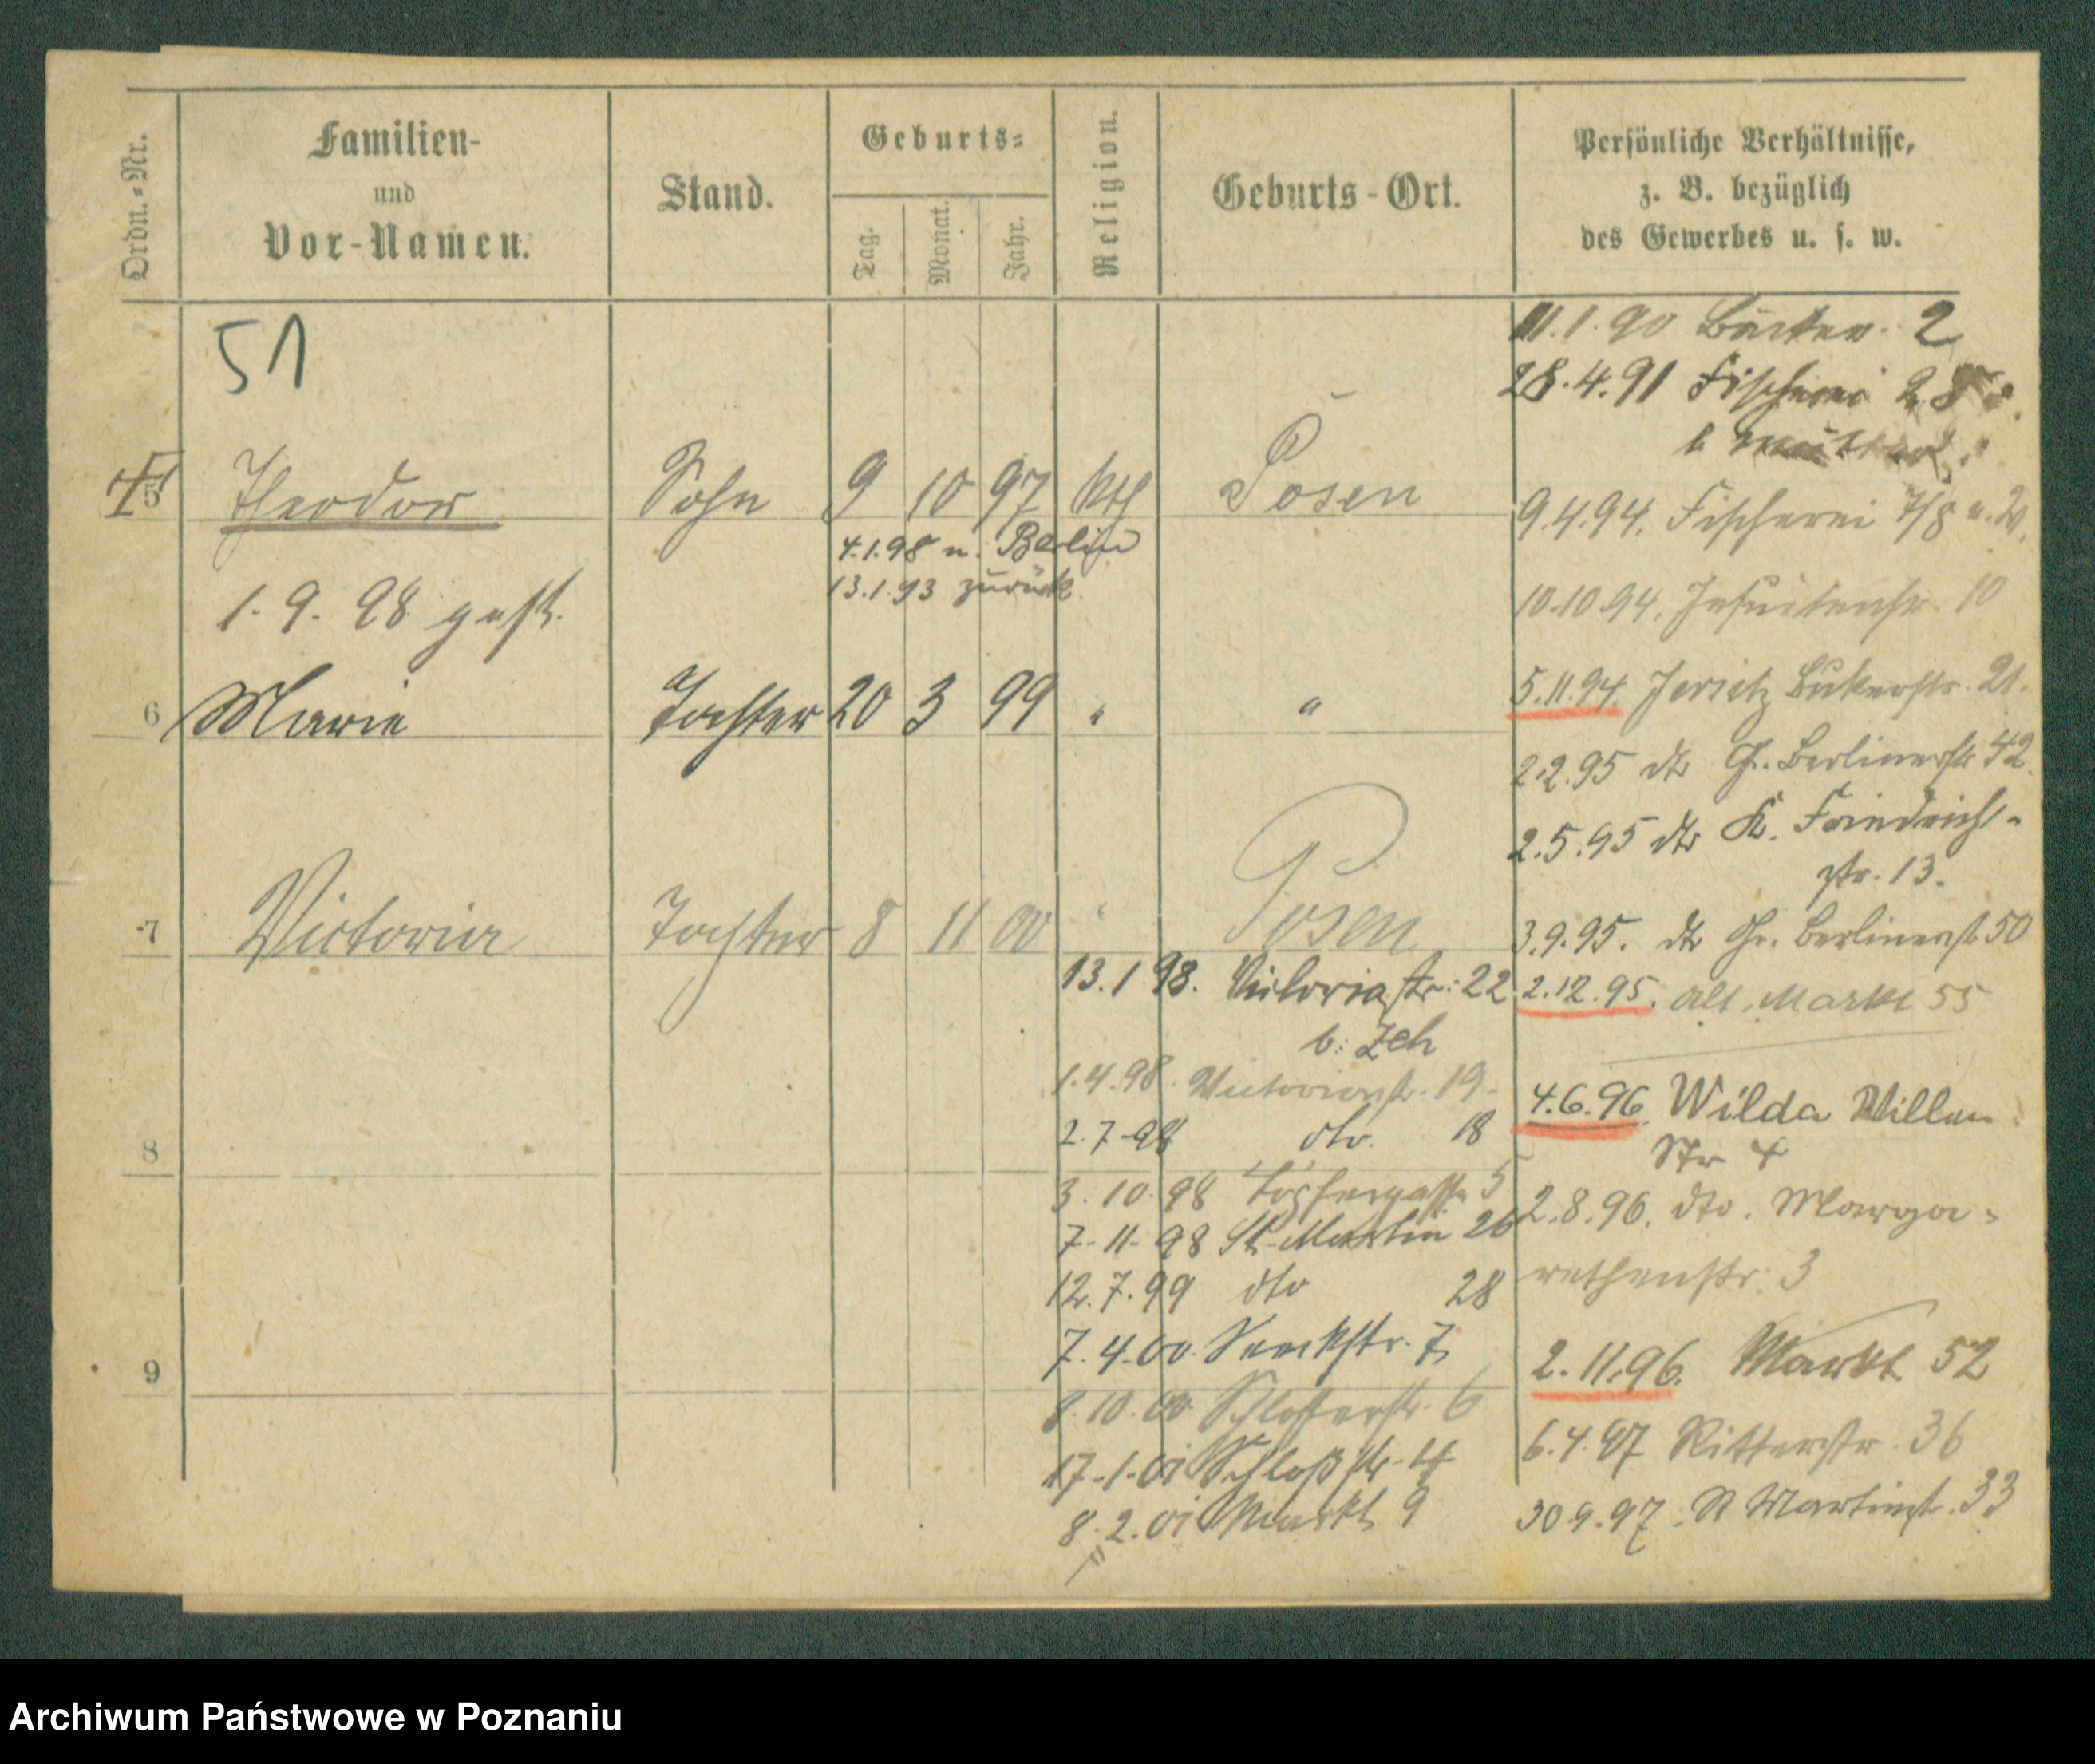 Ordn.-Nr.
Familien-
und
Vor-Namen.
Stand.
Geburts-
Tag.
Monat.
Jahr.
Religion.
Geburts-Ort.
Persönliche Verhältnisse,
z. B. bezüglich
des Gewerbes u. s. w.
51
5 Theodor Sohn 9 10 97 kth Posen
4.1.98 n. Berlin
13.1.93 zurück
1. 9. 98 gest.
6 Marie Tochter 20 3 99 " "
7 Victoria Tochter 8 11 00 " Posen
8
9
13.1 98. Victoriastr: 22
b: Zeh
1.4.98. Victoriastr. 19.
2.7.98 dto. 18
3.10.98 Töpfergasse 5
7-11-98 St. Martin 26
12.7.99 dto 28
7.4.00. 7
8.10.00 Schlosserstr. 6
17-1-01 Schloßstr. 4
8.2.01 Markt 9
11.1.90 Bäcker. 2
28.4.91 Fischerei
b
9.4.94. Fischerei 7/8
10.10.94. Jesuitenstr. 10
5.11.94. Jersitz 21.
2.2.95 dto Gr. Berlinerstr. 42.
2.5.95 dto K. Friedrich-
str. 13.
3.9.95. dto Gr. Berlinerst. 50
2.12.95. Alt. Markt 55
4.6.96. Wilda Villen
Str 4
2.8.96. dto. Marga-
rethenstr. 3
2.11.96. Markt 52
6.4.97 Ritterstr. 36
30.9.97. St Martinst. 33
Archiwum Państwowe w Poznaniu